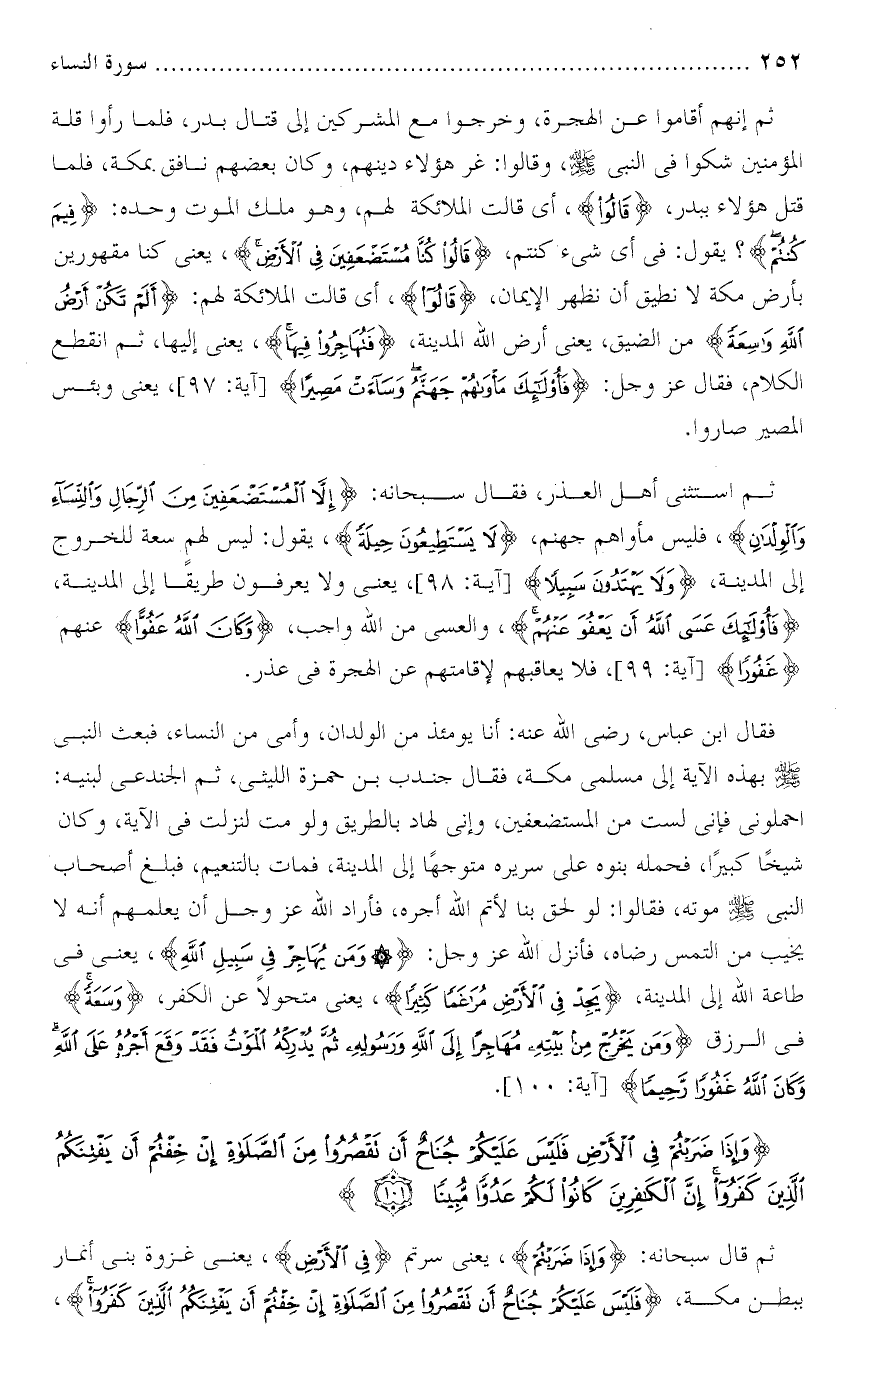 ٢٥٢ ........................................................................... سورة النساء
ثم إنهم أقاموا عن الهجرة، وخرجوا مع المشركين إلى قتال بدر، فلما رأوا قلة
المؤمنين شكوا فى النبى ﷺ، وقالوا: غر هؤلاء دينهم، وكان بعضهم نافق بمكة، فلما
قتل هؤلاء ببدر، ﴿قَالُوا۟﴾، أى قالت الملائكة لهم، وهو ملك الموت وحده: ﴿فِيمَ
كُنتُمْ ۖ﴾؟ يقول: فى أى شىء كنتم، ﴿قَالُوا۟ كُنَّا مُسْتَضْعَفِينَ فِى ٱلْأَرْضِ ۚ﴾، يعنى كنا مقهورين
بأرض مكة لا نطيق أن نظهر الإيمان، ﴿قَالُوٓا۟﴾، أى قالت الملائكة لهم: ﴿أَلَمْ تَكُنْ أَرْضُ
ٱللَّهِ وَٰسِعَةً﴾ من الضيق، يعنى أرض الله المدينة، ﴿فَتُهَاجِرُوا۟ فِيهَا ۚ﴾، يعنى إليها، ثم انقطع
الكلام، فقال عز وجل: ﴿فَأُو۟لَٰٓئِكَ مَأْوَىٰهُمْ جَهَنَّمُ ۖ وَسَآءَتْ مَصِيرًا﴾ [آية: ٩٧]، يعنى وبئس
المصير صاروا.
ثم استثنى أهل العذر، فقال سبحانه: ﴿إِلَّا ٱلْمُسْتَضْعَفِينَ مِنَ ٱلرِّجَالِ وَٱلنِّسَآءِ
وَٱلْوِلْدَٰنِ﴾، فليس مأواهم جهنم، ﴿لَا يَسْتَطِيعُونَ حِيلَةً﴾، يقول: ليس لهم سعة للخروج
إلى المدينة، ﴿وَلَا يَهْتَدُونَ سَبِيلًا﴾ [آية: ٩٨]، يعنى ولا يعرفون طريقًا إلى المدينة،
﴿فَأُو۟لَٰٓئِكَ عَسَى ٱللَّهُ أَن يَعْفُوَ عَنْهُمْ ۚ﴾، والعسى من الله واجب، ﴿وَكَانَ ٱللَّهُ عَفُوًّا﴾ عنهم
﴿غَفُورًا﴾ [آية: ٩٩]، فلا يعاقبهم لإقامتهم عن الهجرة فى عذر.
فقال ابن عباس، رضى الله عنه: أنا يومئذ من الولدان، وأمى من النساء، فبعث النبى
ﷺ بهذه الآية إلى مسلمى مكة، فقال جندب بن حمزة الليثى، ثم الجندعى لبنيه:
احملونى فإنى لست من المستضعفين، وإنى لهاد بالطريق ولو مت لنزلت فى الآية، وكان
شيخًا كبيرًا، فحمله بنوه على سريره متوجهًا إلى المدينة، فمات بالتنعيم، فبلغ أصحاب
النبى ﷺ موته، فقالوا: لو لحق بنا لأتم الله أجره، فأراد الله عز وجل أن يعلمهم أنه لا
يخيب من التمس رضاه، فأنزل الله عز وجل: ﴿۞ وَمَن يُهَاجِرْ فِى سَبِيلِ ٱللَّهِ﴾، يعنى فى
طاعة الله إلى المدينة، ﴿يَجِدْ فِى ٱلْأَرْضِ مُرَٰغَمًا كَثِيرًا﴾، يعنى متحولاً عن الكفر، ﴿وَسَعَةً ۚ﴾
فى الرزق ﴿وَمَن يَخْرُجْ مِنۢ بَيْتِهِۦ مُهَاجِرًا إِلَى ٱللَّهِ وَرَسُولِهِۦ ثُمَّ يُدْرِكْهُ ٱلْمَوْتُ فَقَدْ وَقَعَ أَجْرُهُۥ عَلَى ٱللَّهِ ۗ
وَكَانَ ٱللَّهُ غَفُورًا رَّحِيمًا﴾ [آية: ١٠٠].
﴿وَإِذَا ضَرَبْتُمْ فِى ٱلْأَرْضِ فَلَيْسَ عَلَيْكُمْ جُنَاحٌ أَن تَقْصُرُوا۟ مِنَ ٱلصَّلَوٰةِ إِنْ خِفْتُمْ أَن يَفْتِنَكُمُ
ٱلَّذِينَ كَفَرُوٓا۟ ۚ إِنَّ ٱلْكَٰفِرِينَ كَانُوا۟ لَكُمْ عَدُوًّا مُّبِينًا ١٠١﴾
ثم قال سبحانه: ﴿وَإِذَا ضَرَبْتُمْ﴾، يعنى سرتم ﴿فِى ٱلْأَرْضِ﴾، يعنى غزوة بنى أنمار
ببطن مكة، ﴿فَلَيْسَ عَلَيْكُمْ جُنَاحٌ أَن تَقْصُرُوا۟ مِنَ ٱلصَّلَوٰةِ إِنْ خِفْتُمْ أَن يَفْتِنَكُمُ ٱلَّذِينَ كَفَرُوٓا۟ ۚ﴾،